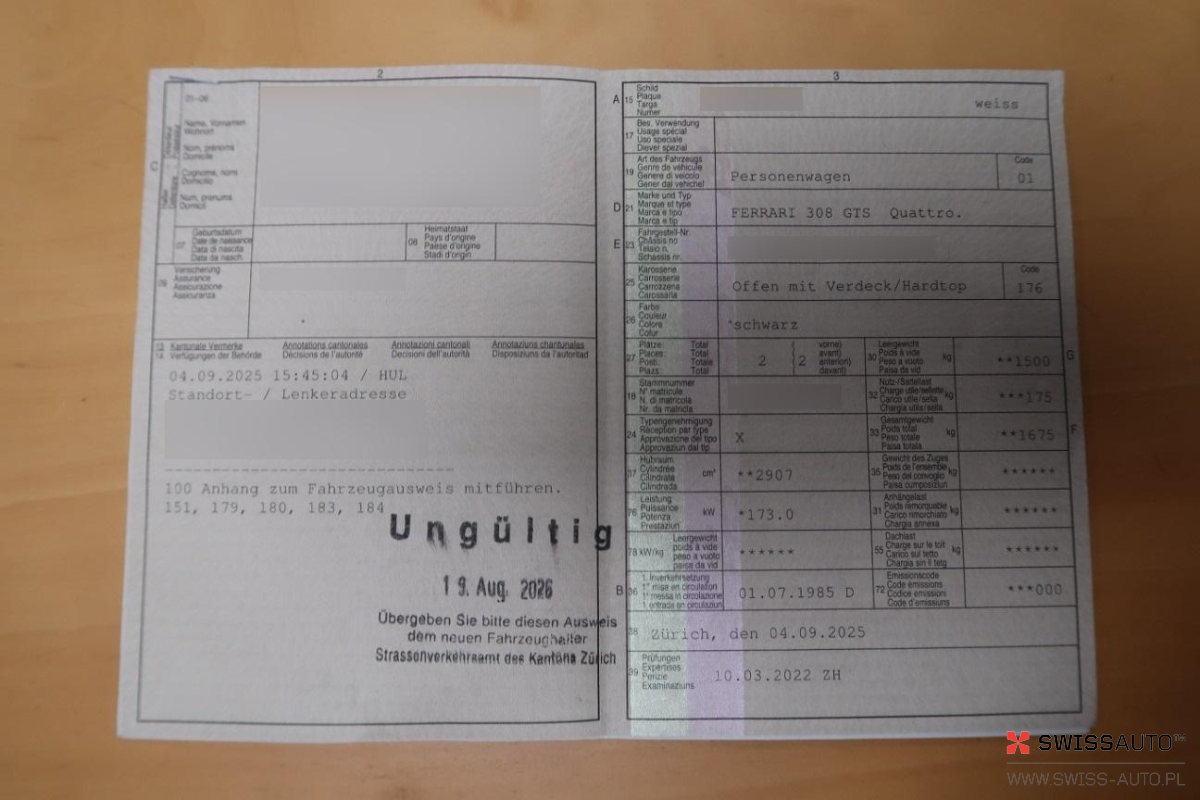 2
01-06
Name, Vornamen
Wohnort
Nom, prénoms
Domicile
Cognome, nomi
Domicilio
Num, prenums
Domicil
C
07
Geburtsdatum
Date de naissance
Data di nascita
Data da nasch.
08
Heimatstaat
Pays d'origine
Paese d'origine
Stadi d'origin
09
Versicherung
Assurance
Assicurazione
Assicuranza
13 Kantonale Vermerke Annotations cantonales Annotazioni cantonali Annotaziuns chantunalas
14 Verfügungen der Behörde Décisions de l'autorité Decisioni dell'autorità Disposiziuns da l'autoritad
04.09.2025 15:45:04 / HUL
Standort- / Lenkeradresse
100 Anhang zum Fahrzeugausweis mitführen.
151, 179, 180, 183, 184
Ungültig
19. Aug. 2026
Übergeben Sie bitte diesen Ausweis
dem neuen Fahrzeughalter
Strassenverkehrsamt des Kantons Zürich
3
A 15
Schild
Plaque
Targa
Numer
weiss
17
Bes. Verwendung
Usage spécial
Uso speciale
Diever spezial
19
Art des Fahrzeugs
Genre de véhicule
Genere di veicolo
Gener dal vehichel
Personenwagen
Code
01
D 21
Marke und Typ
Marque et type
Marca e tipo
Marca e tip
FERRARI 308 GTS Quattro.
E 23
Fahrgestell-Nr.
Châssis no
Telaio n.
Schassis nr.
25
Karosserie
Carrosserie
Carrozzeria
Carossaria
Offen mit Verdeck/Hardtop
Code
176
26
Farbe
Couleur
Colore
Colur
schwarz
27
Plätze: Total
Places: Total
Posti: Totale
Plazs: Total
2
vorne)
avant)
anteriori)
davant)
2
30
Leergewicht
Poids à vide
Peso a vuoto
Paisa da vid
kg
**1500
G
18
Stammnummer
N° matricule
N. di matricola
Nr. da matricla
32
Nutz-/Sattellast
Charge utile/sellette
Carico utile/sella
Chargia utila/sella
kg
***175
24
Typengenehmigung
Réception par type
Approvazione del tipo
Approvaziun dal tip
X
33
Gesamtgewicht
Poids total
Peso totale
Paisa totala
kg
**1675
F
37
Hubraum
Cylindrée
Cilindrata
Cilindrada
cm³
**2907
35
Gewicht des Zuges
Poids de l'ensemble
Peso del convoglio
Paisa cumposiziun
kg
******
76
Leistung
Puissance
Potenza
Prestaziun
kW
*173.0
31
Anhängelast
Poids remorquable
Carico rimorchiato
Chargia annexa
kg
******
78 kW/kg
Leergewicht
poids à vide
peso a vuoto
paisa da vid
******
55
Dachlast
Charge sur le toit
Carico sul tetto
Chargia sin il tetg
kg
******
B 36
1. Inverkehrsetzung
1re mise en circulation
1a messa in circolazione
1. entrada en circulaziun
01.07.1985 D
72
Emissionscode
Code émissions
Codice emissioni
Code d'emissiuns
***000
38
Zürich, den 04.09.2025
39
Prüfungen
Expertises
Perizie
Examinaziuns
10.03.2022 ZH
SWISSAUTO
WWW.SWISS-AUTO.PL